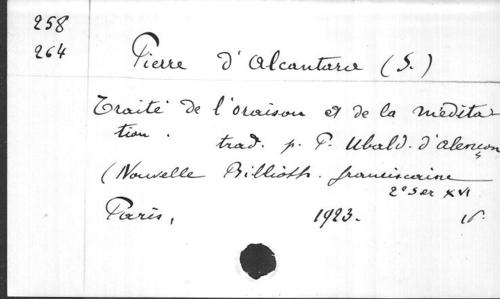 258
264
Pierre d'Alcantara (S.)
Traité de l'oraison et de la médita
tion. trad. p. P. Ubald. d'Alençon
(Nouvelle Billioth. franciscaine
2e Ser XVI
Paris, 1923.